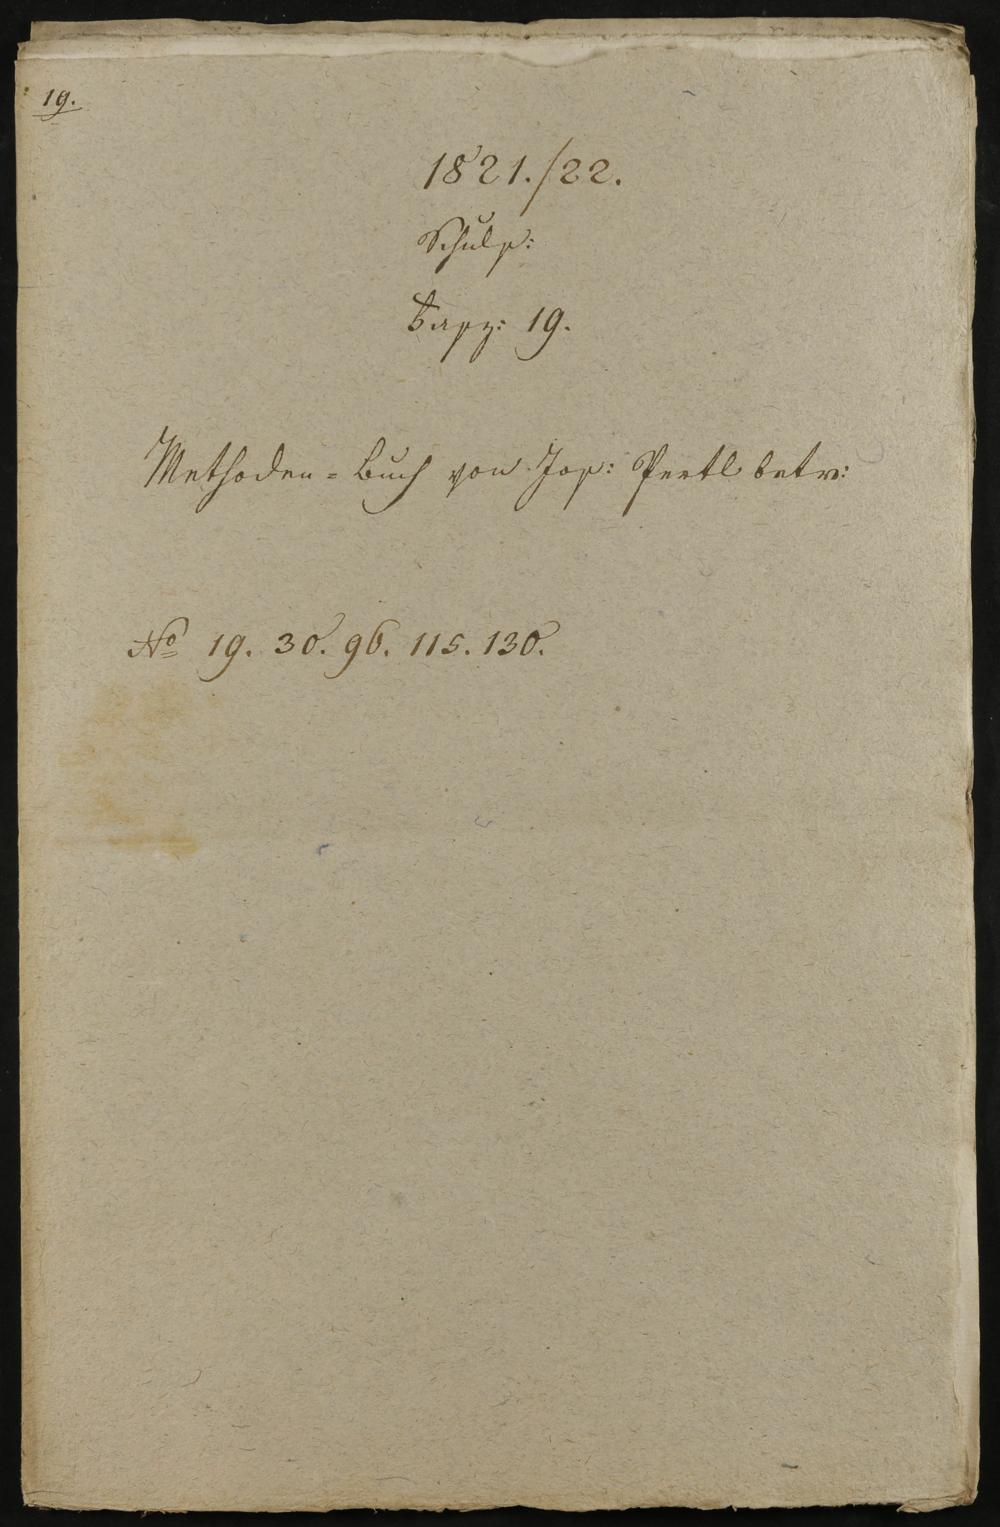 19.
1821./22.
Schuls:
Fasz: 19.
Methoden-Buch von Jos: Pertl betr:
No 19. 30. 96. 115. 130.